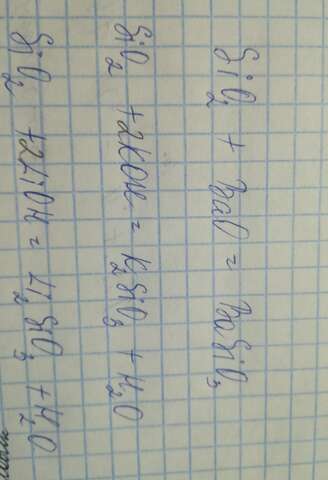 SiO₂ + BaO = BaSiO₃
SiO₂ + 2KOH = K₂SiO₃ + H₂O
SiO₂ + 2LiOH = Li₂SiO₃ + H₂O